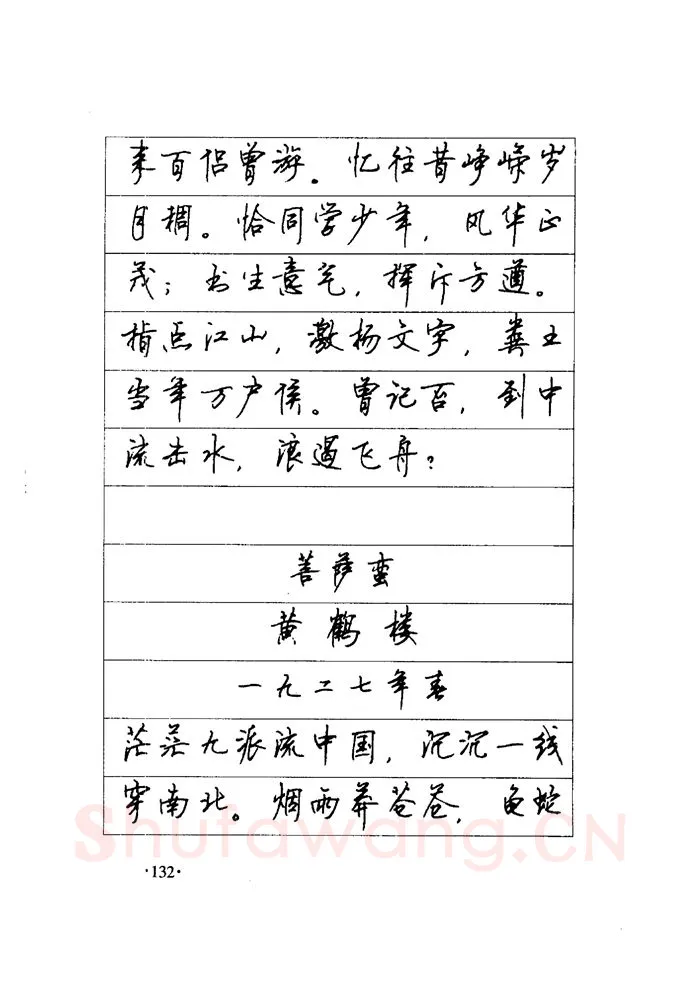 来百侣曾游。忆往昔峥嵘岁
月稠。恰同学少年，风华正
茂；书生意气，挥斥方遒。
指点江山，激扬文字，粪土
当年万户侯。曾记否，到中
流击水，浪遏飞舟？
菩萨蛮
黄鹤楼
一九二七年春
茫茫九派流中国，沉沉一线
穿南北。烟雨莽苍苍，龟蛇
Shufawang.CN
·132·